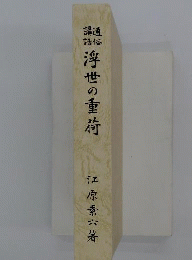 通俗
講話
浮世の重荷
江原素六著